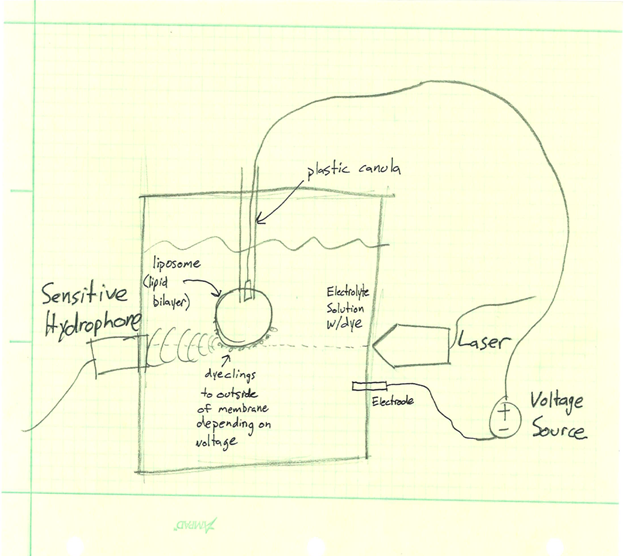 plastic canula
liposome
(lipid
bilayer)
Sensitive
Hydrophone
Electrolyte
Solution
w/dye
Laser
dye clings
to outside
of membrane
depending on
voltage
Electrode
+
-
Voltage
Source
AMPAD